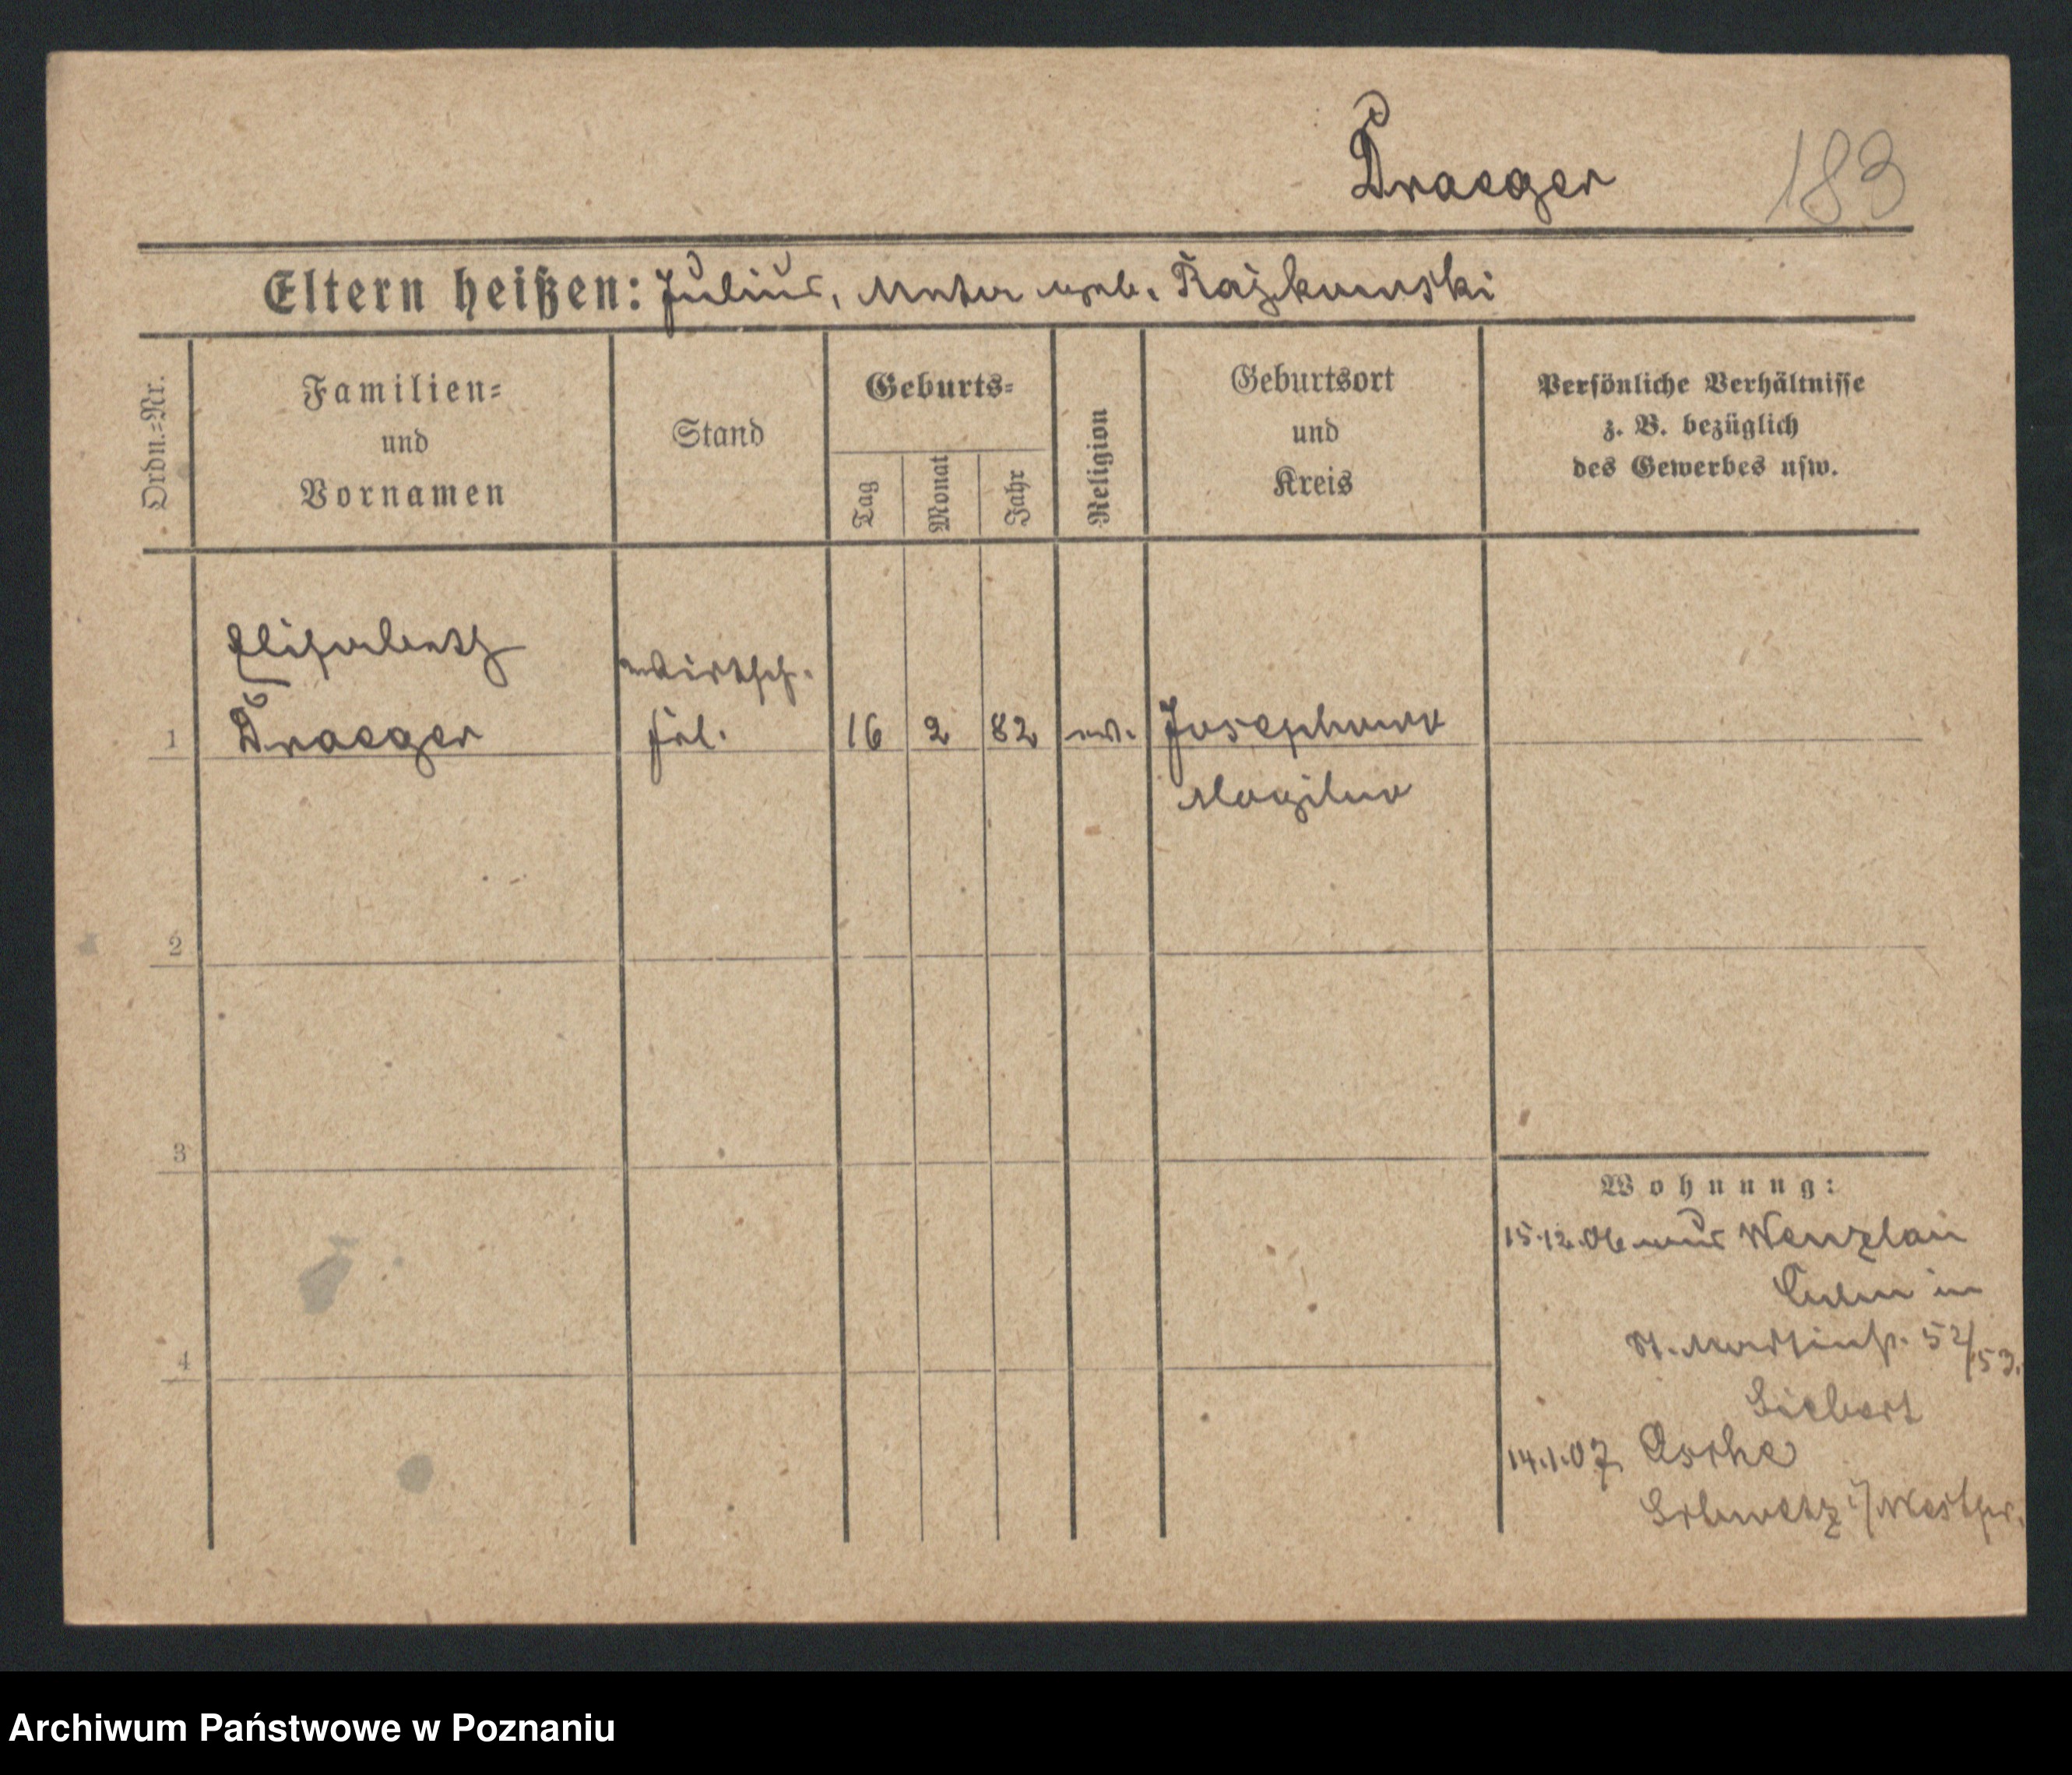 Draeger 183
Eltern heißen: Julius, Mutter geb. Rajkowski
Ordn.=Nr.
Familien=
und
Vornamen
Stand
Geburts=
Tag
Monat
Jahr
Religion
Geburtsort
und
Kreis
Persönliche Verhältnisse
z. B. bezüglich
des Gewerbes usw.
Elisabeth
Wirtsch.
1 Draeger frl. 16 2 82 ev. Josephowo
Mogilno
2
3
4
Wohnung:
15.12.06 aus Wenzlau
Culm in
St. Martinstr. 52/53.
Siebert
14.1.07 Osche
Schwetz i/Westpr.
Archiwum Państwowe w Poznaniu